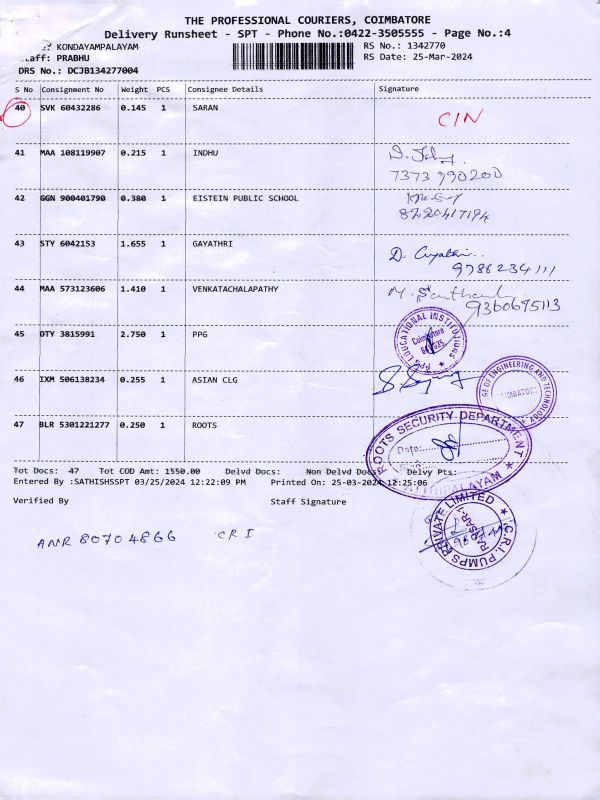 THE PROFESSIONAL COURIERS, COIMBATORE
Delivery Runsheet - SPT - Phone No.:0422-3505555 - Page No.:4
KONDAYAMPALAYAM
RS No.: 1342770
Staff: PRABHU
RS Date: 25-Mar-2024
DRS No.: DCJB134277004
S No Consignment No Weight PCS Consignee Details Signature
40 SVK 60432286 0.145 1 SARAN CIN
41 MAA 108119907 0.215 1 INDHU
7373 990200
42 GGN 900401790 0.380 1 EISTEIN PUBLIC SCHOOL
8220417194
43 STY 6042153 1.655 1 GAYATHRI D. Gayathri..
9786234111
44 MAA 573123606 1.410 1 VENKATACHALAPATHY
9360695113
45 OTY 3815991 2.750 1 PPG
PPG EDUCATIONAL INSTITUTIONS
Coimbatore
46 IXM 506138234 0.255 1 ASIAN CLG
GE OF ENGINEERING AND TECHNOLOGY
47 BLR 5301221277 0.250 1 ROOTS
ROOTS SECURITY DEPARTMENT
Date:
Tot Docs: 47 Tot COD Amt: 1550.00 Delvd Docs: Non Delvd Docs: Delvy Pts:
Entered By :SATHISHSSPT 03/25/2024 12:22:09 PM Printed On: 25-03-2024 12:25:06
Verified By Staff Signature
C.R.I. PUMPS PRIVATE LIMITED
ANR 80704866 CRI